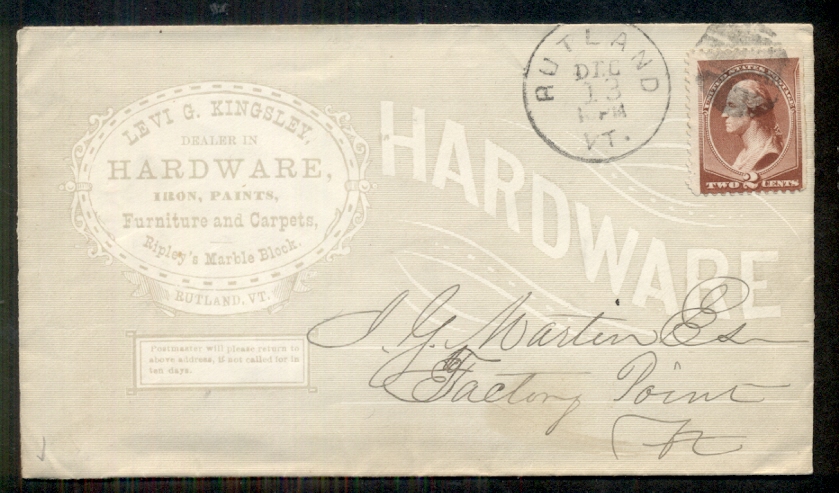 LEVI G. KINGSLEY,
DEALER IN
HARDWARE,
IRON, PAINTS,
Furniture and Carpets,
Ripley's Marble Block.
RUTLAND, VT.
Postmaster will please return to
above address, if not called for in
ten days.
HARDWARE
RUTLAND
DEC
13
PM
VT.
UNITED STATES POSTAGE
TWO 2 CENTS
J. G. Martin Esq
Factory Point
Vt